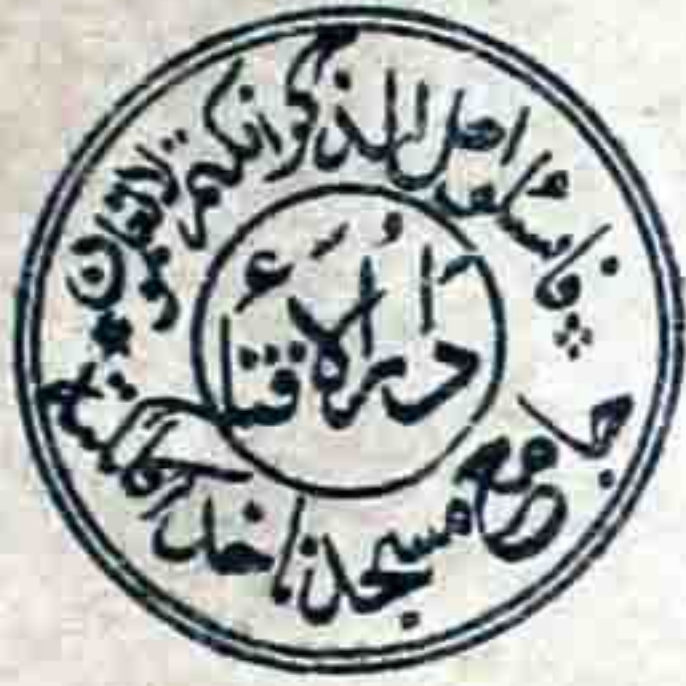 فاسئلوا اهل الذکر ان کنتم لا تعلمون
دَارُالْاِفْتَاء
جامع مسجد ناخدا کلکتہ